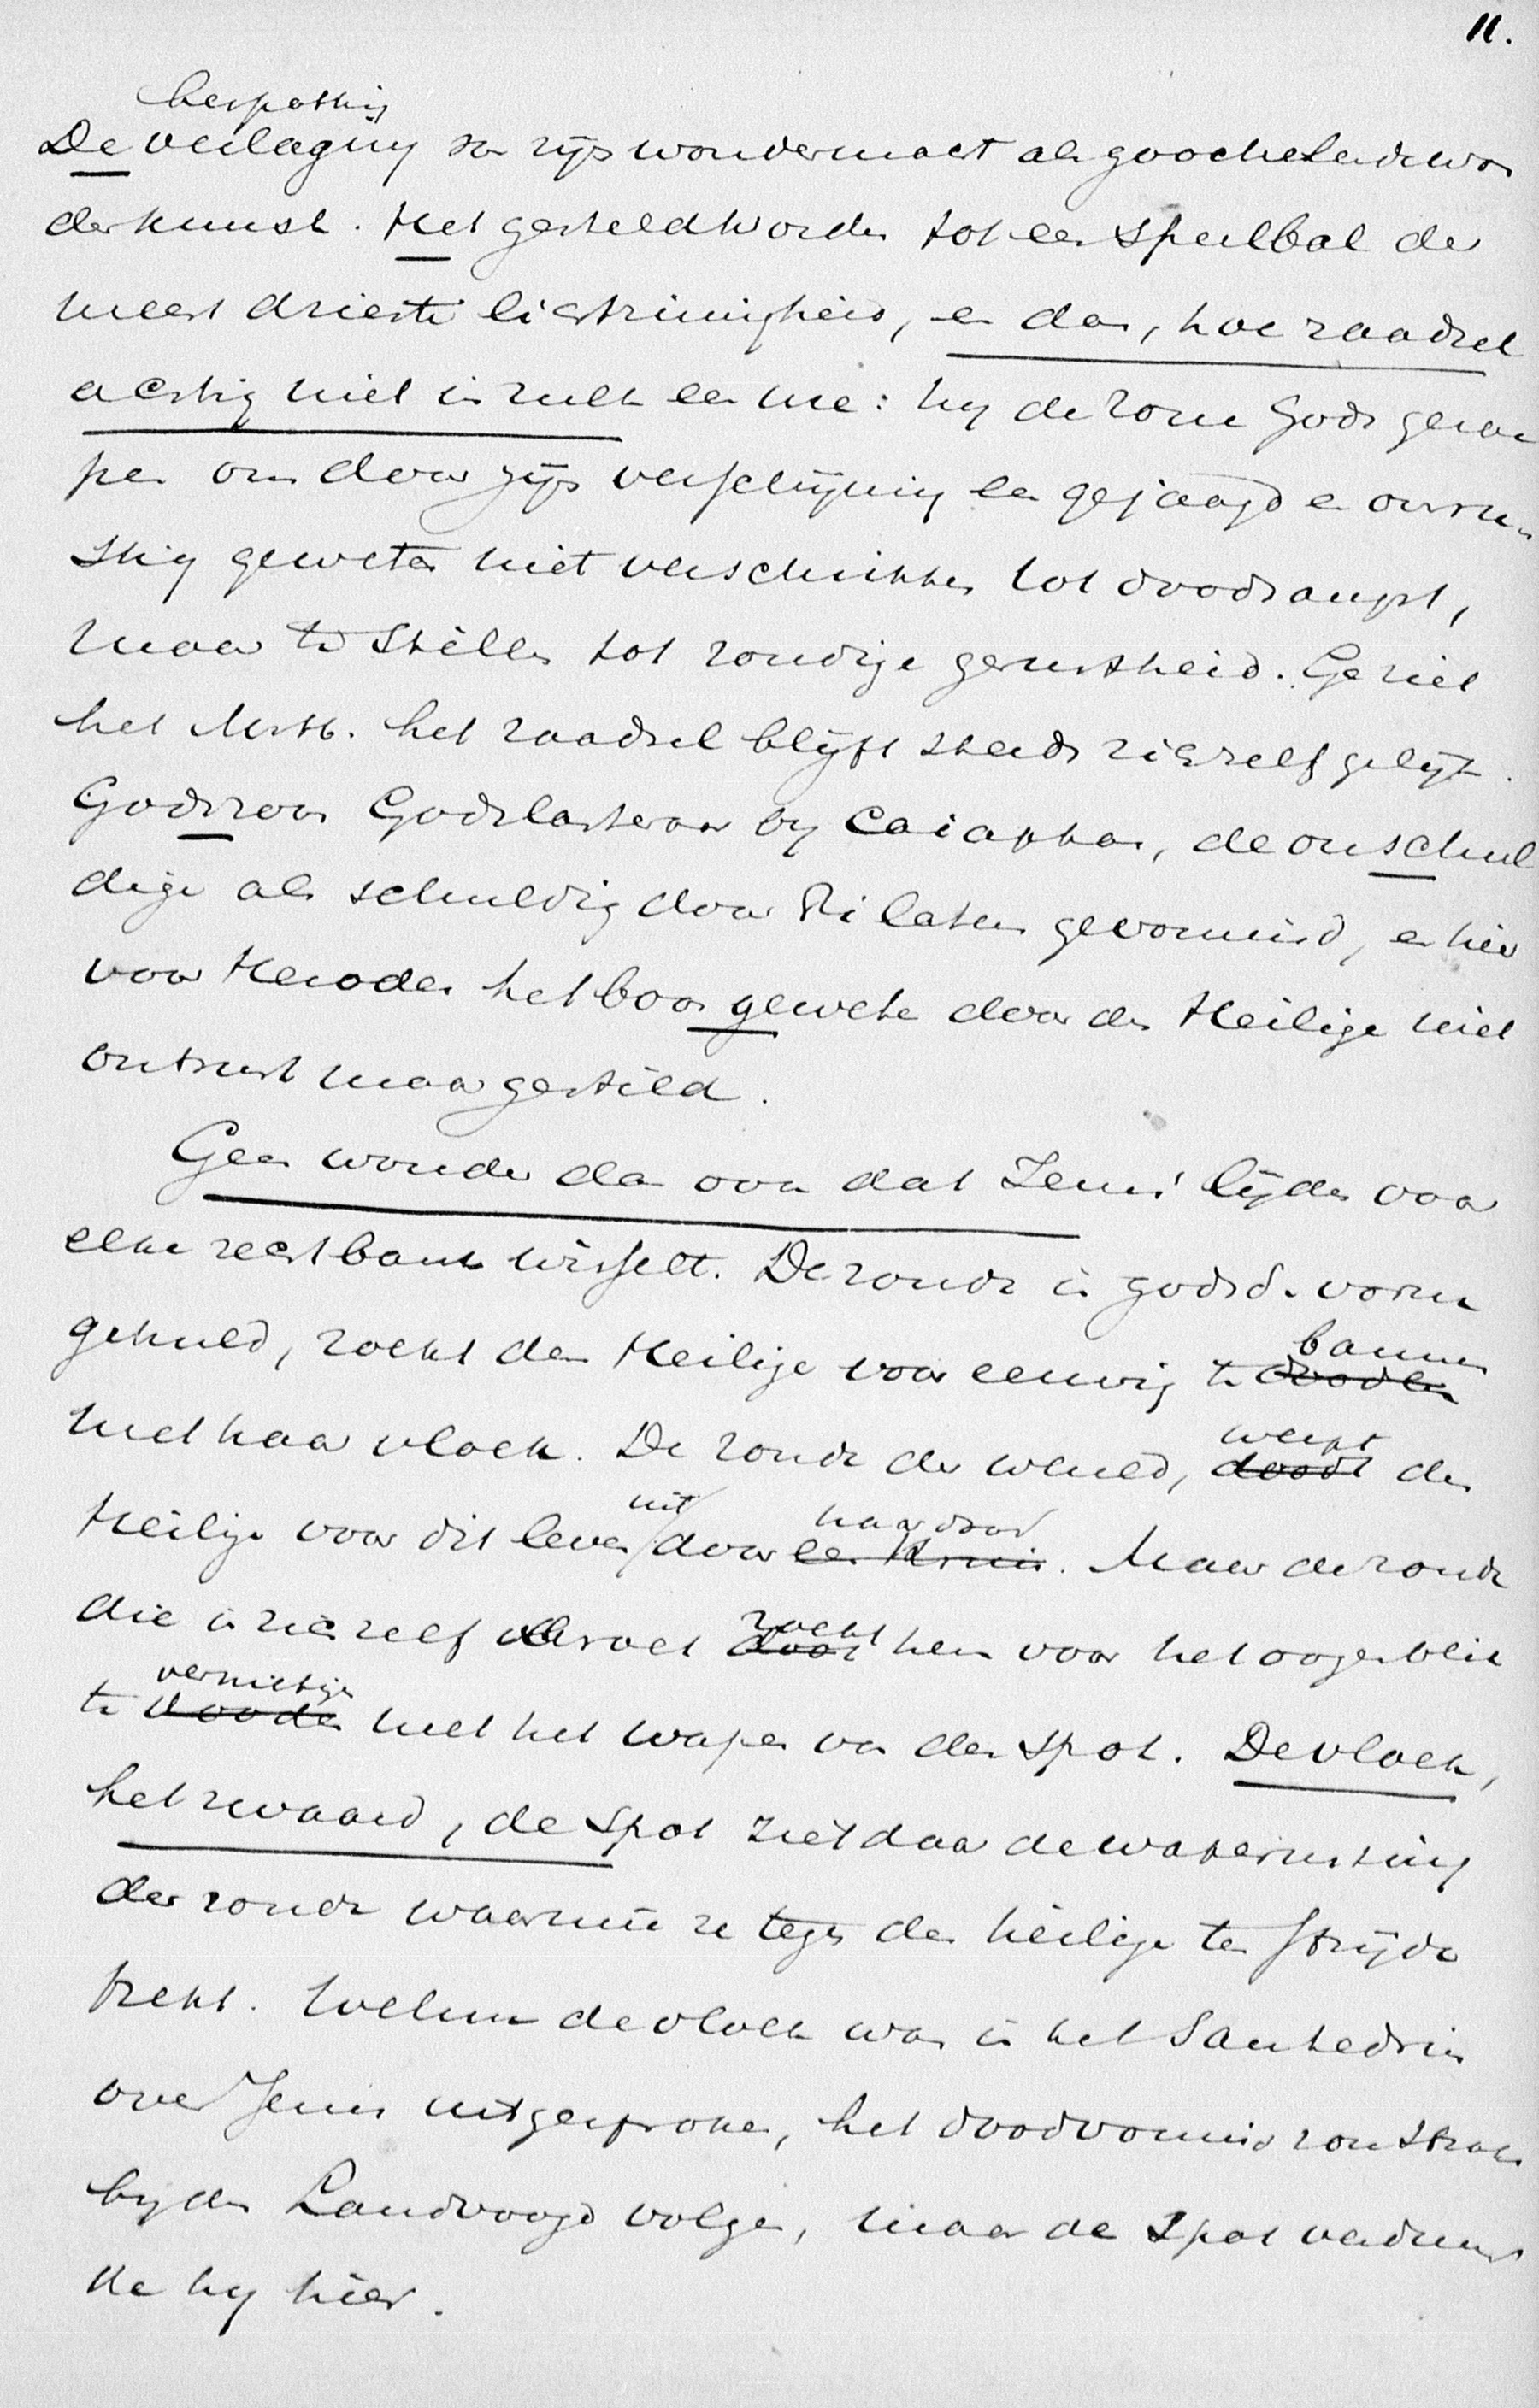 11.
bespotting
De verlaging van zijn wondermacht als goochelende won
derkunst. Het gesteld worden tot een speelbal der
meest drieste lichtzinnigheid, en dan, hoe raadsel
achtig niet in zulk een ure: hij de zone Gods geroe
pen om door zijn verschijning een gejaagd en onrus
stig geweten niet verschrikken tot doodsangst,
maar te stillen tot zondige gerustheid. Ge ziet
het M. H. het raadsel blijft steeds zichzelf gelijk.
Gods zoon Godslasteraar bij Caiaphas, de onschul
dige als schuldig door Pilatus gevonnisd, en hier
voor Herodes het boos geweten door den Heilige niet
ontrust maar gestild.
Geen wonder dan ook dat Jezus' lijden voor
elke rechtbank wisselt. De zonde in godsd. vorm
gehuld, zoekt den Heilige voor eeuwig te dooden bannen
met haar vloek. De zonde der wereld, doodt werpt den
Heilige voor dit leven uit door een kruis haar zwaard. Maar de zonde
die in zichzelf verrot doodt zoekt hem voor het oogenblik
te dooden vernietigen met het wapen van den spot. De vloek,
het zwaard, de spot ziet daar de wapenrusting
der zonde waarmeê ze tegen den heilige ten strijde
trekt. Welnu de vloek was in het Sanhedrin
over Jezus uitgesproken, het doodvonnis zou straks
bij den Landvoogd volgen, maar de spot verduur
de hij hier.